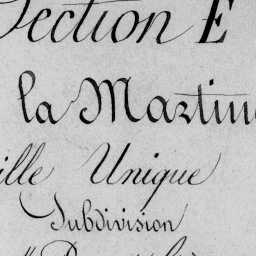 Section E
la Martin
ille Unique
Subdivision